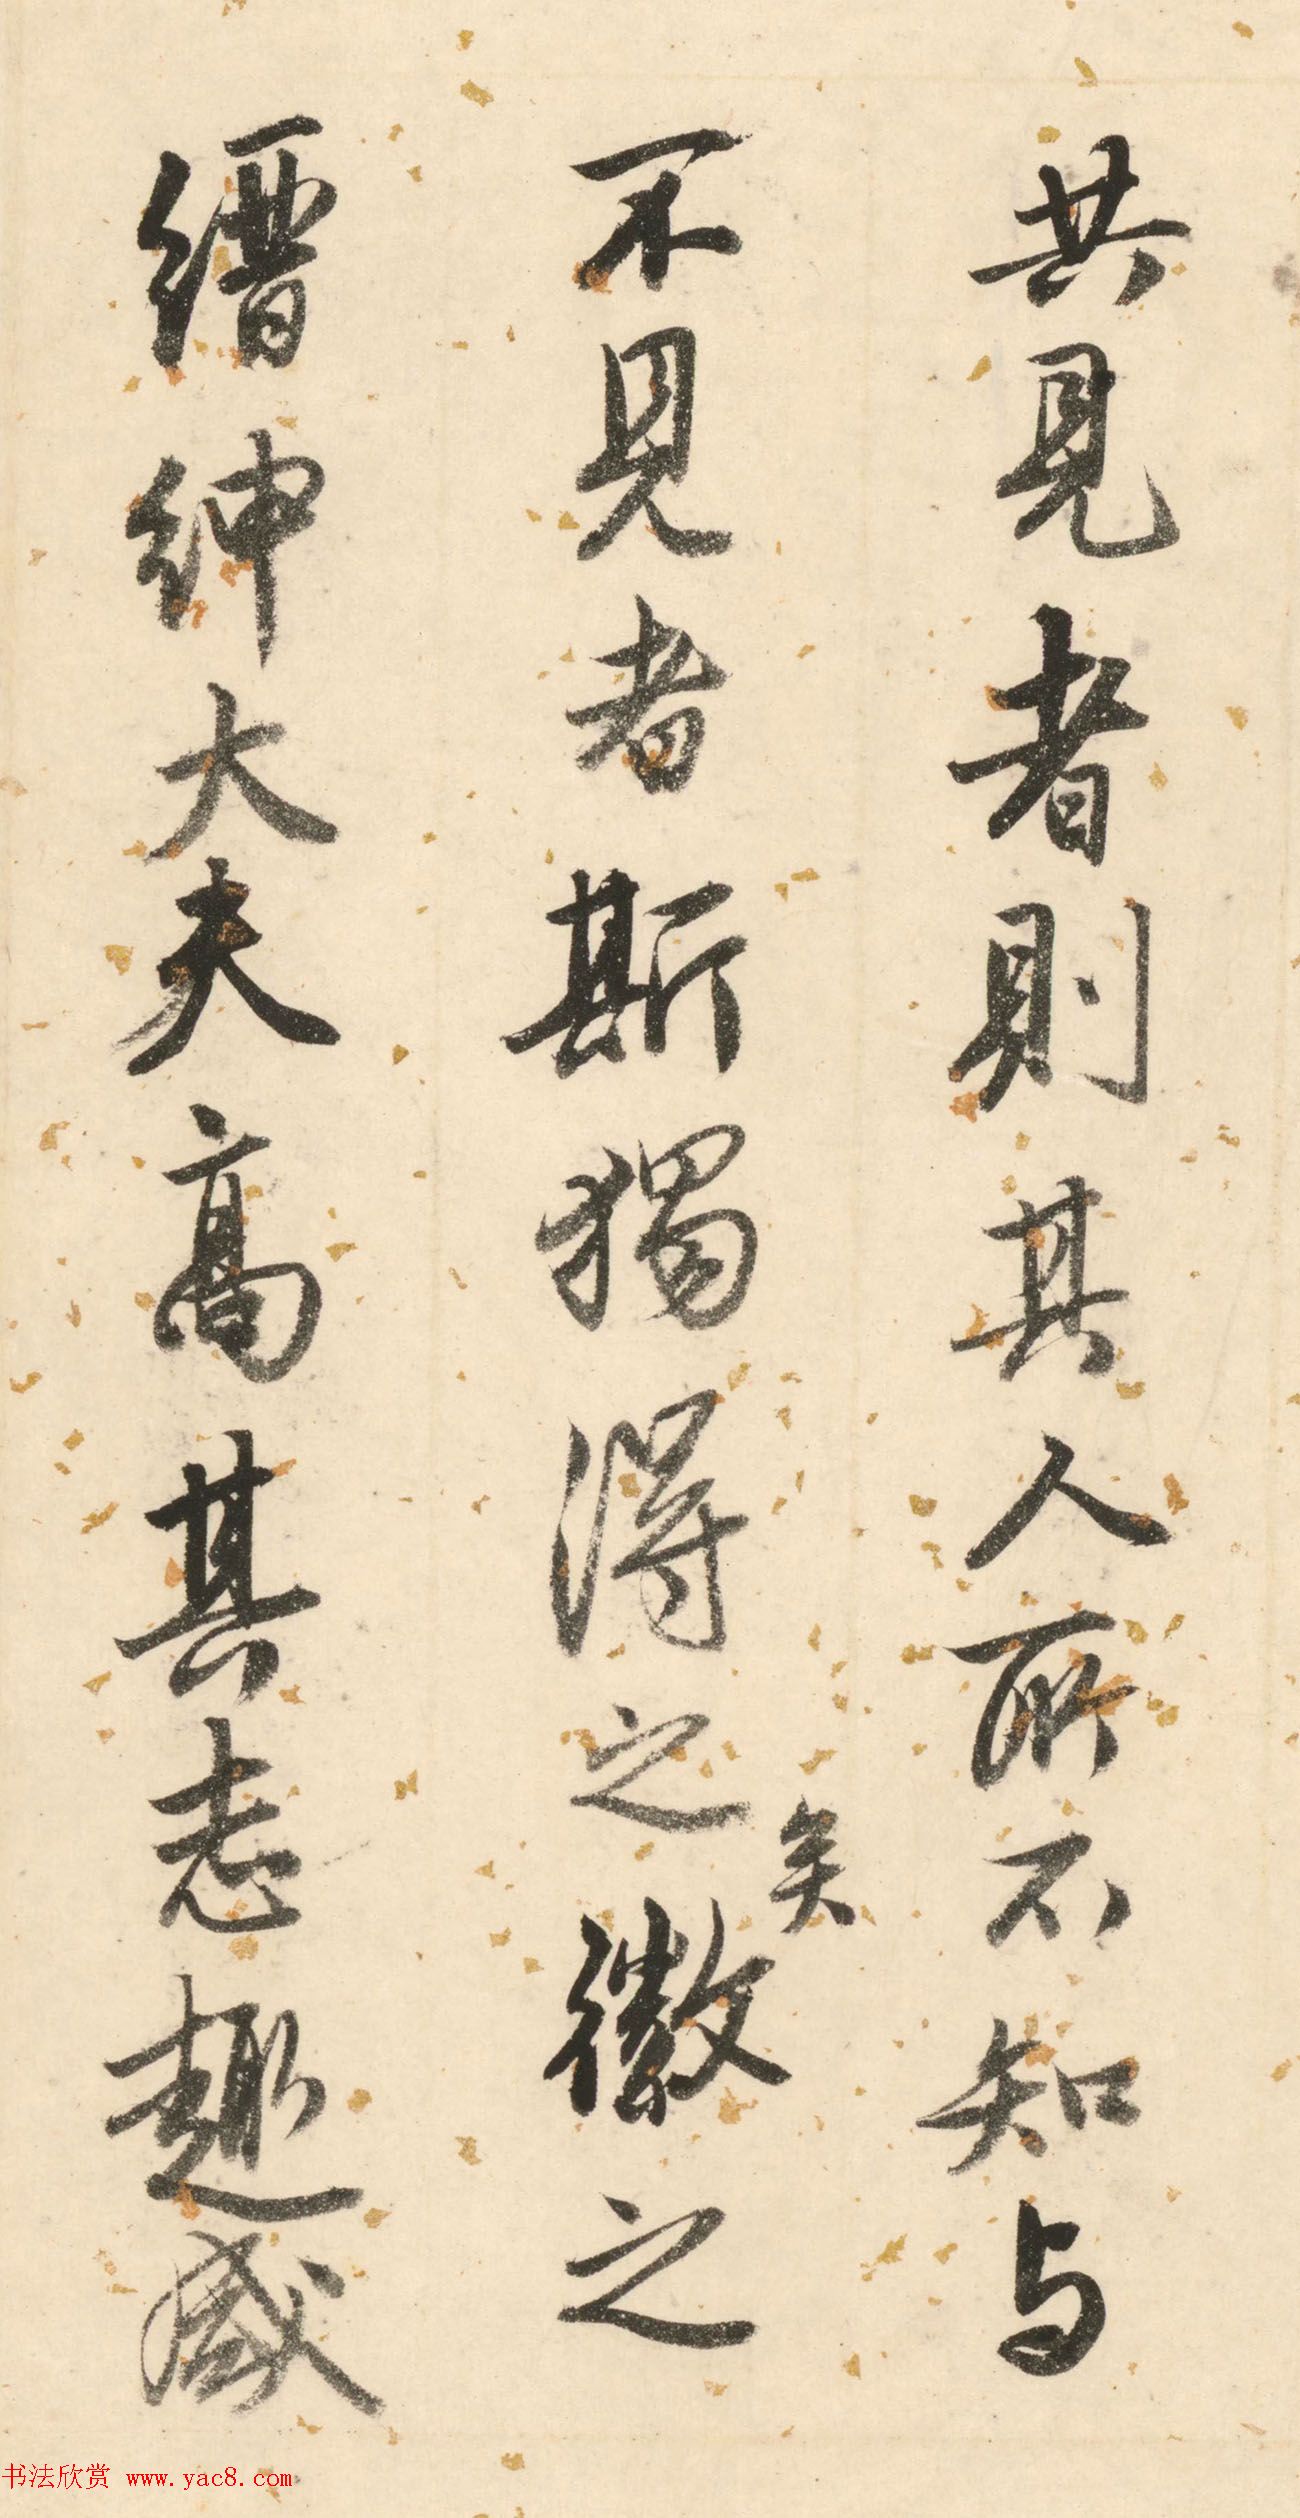 共見者則其人所不知与
不見者斯獨得之矣徵之
縉紳大夫高其志趣盛
书法欣赏 www.yac8.com